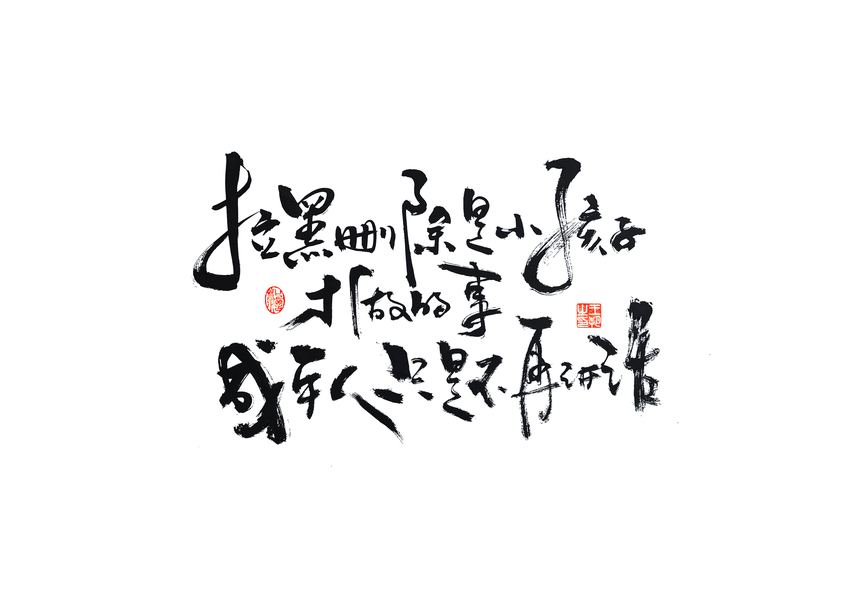 拉黑删除是小孩子
才做的事
成年人只是不再讲话